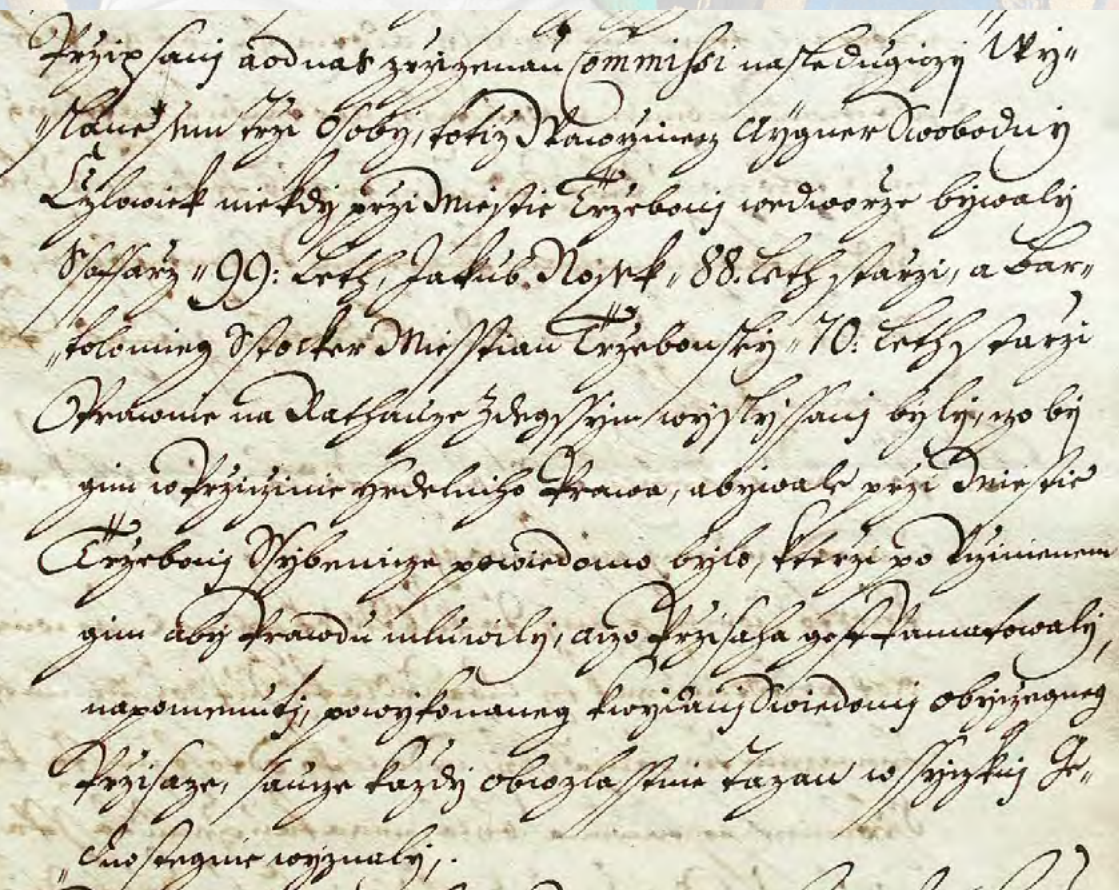 Przipsanj a od nas zrzizenau Commissi nasledugiczy Wy„
„slane sem trzi Osoby, totiz Wawrzinecz Aygner Swobodny
Czlowiek niekdy przi Miestie Trzebonj wedworze bywaly
Ssaffarz „ 99: Leth, Jakub Nossek „ 88. Leth starzi, a Bar„
„tolomieg Stocker Miesstian Trzebonsky „ 70: Leth starzi
Prawnie na Rathauze Zdegssym wyslyssanj byly, czo by
gim w Prziczinie Hrdelniho Prawa, a bywale przi Miestie
Trzebonj Ssybenicze powiedomo bylo, kterzi po Uczinienem
gim aby Prawdu mluwily, a czo Przisaha gest Pamatowaly,
napomenutj, po wykonaneg k wydanj Swiedomj obyczegneg
Przisaze, sauze kazdy obwzlasstnie tazan wssyczknj Ge„
„dnostegnie wyznaly,.